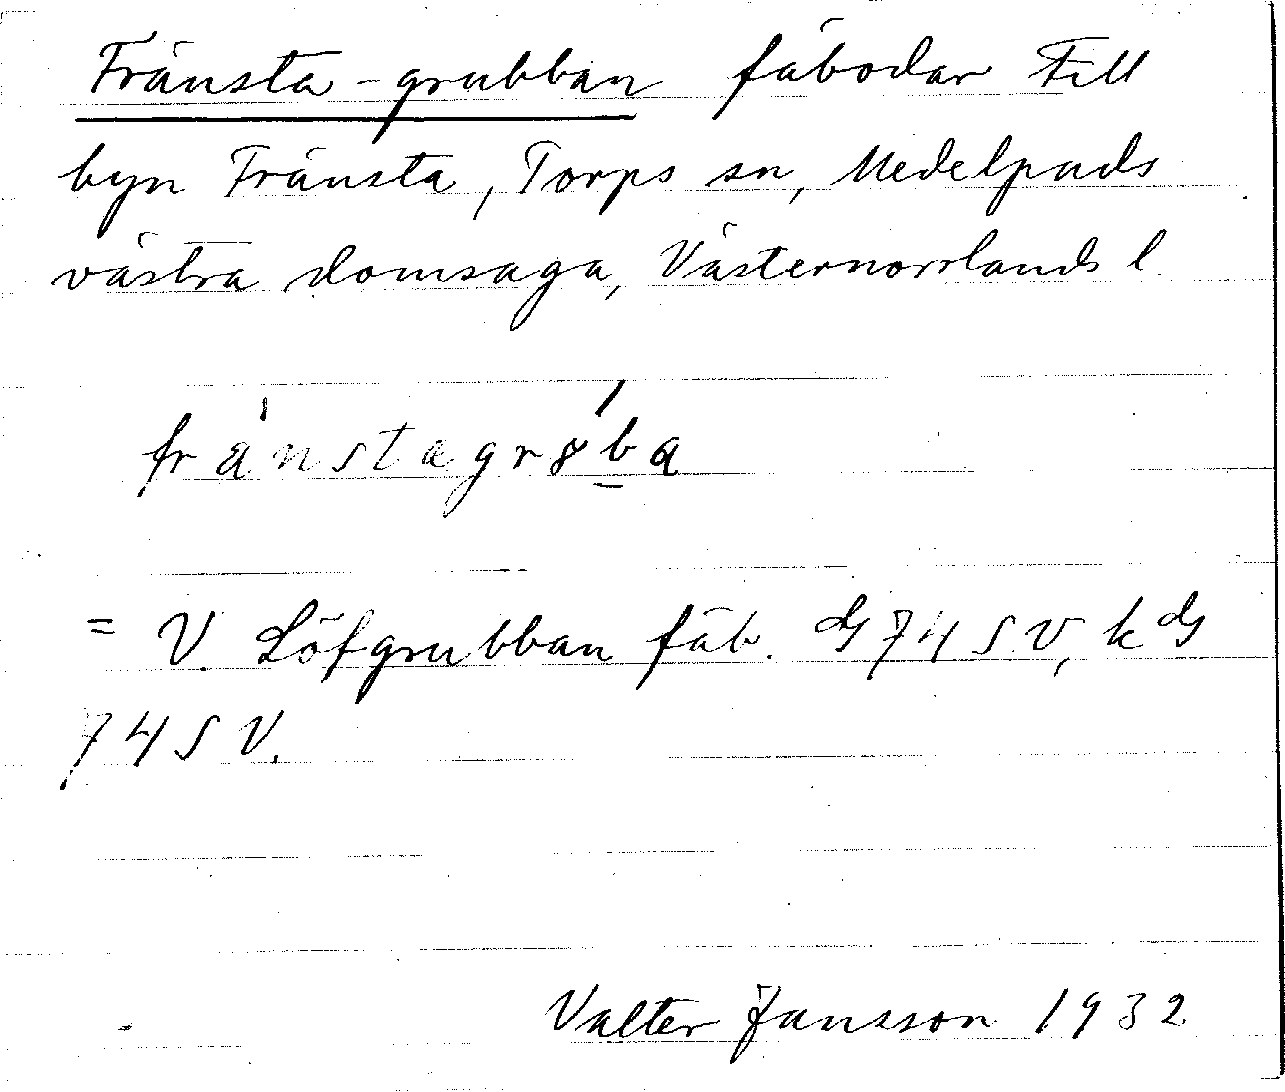 Fränsta-grubban fäbodar till
byn Fränsta, Torps sn, Medelpads
västra domsaga, Västernorrlands l.
fränstagr8ba
= V. Löfgrubban fäb. G 74 SV, k G
74 SV.
Valter Jansson 1932